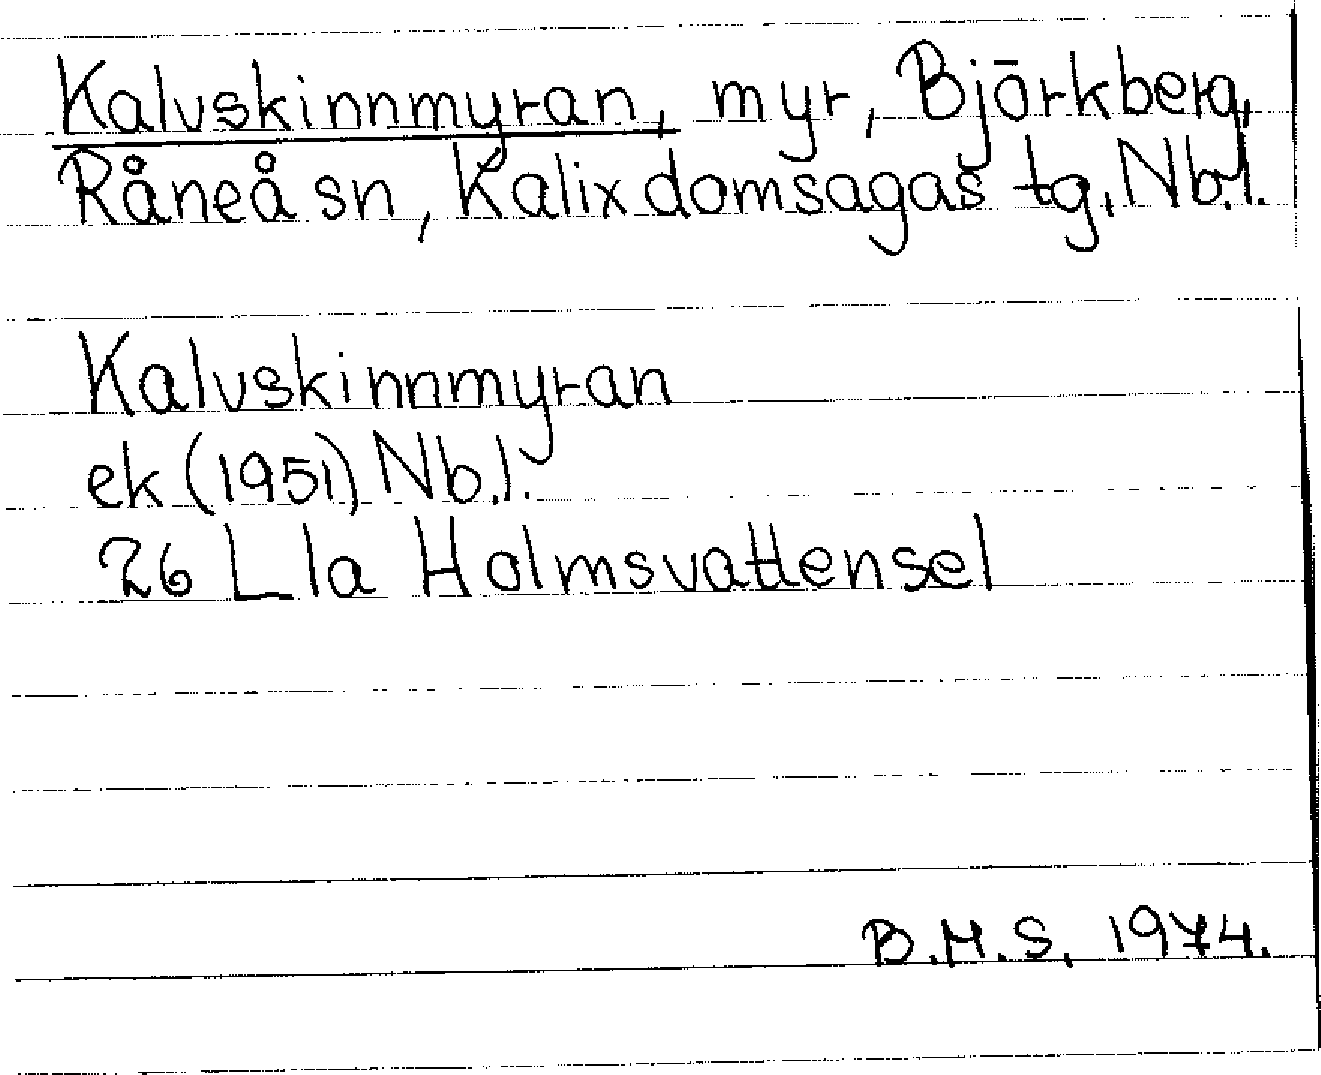 Kalvskinnmyran, myr, Björkberg,
Råneå sn, Kalix domsagas tg, Nb.l.
Kalvskinnmyran
ek (1951) Nb.l.
26 L 1a Holmsvattensel
B.M.S. 1974.